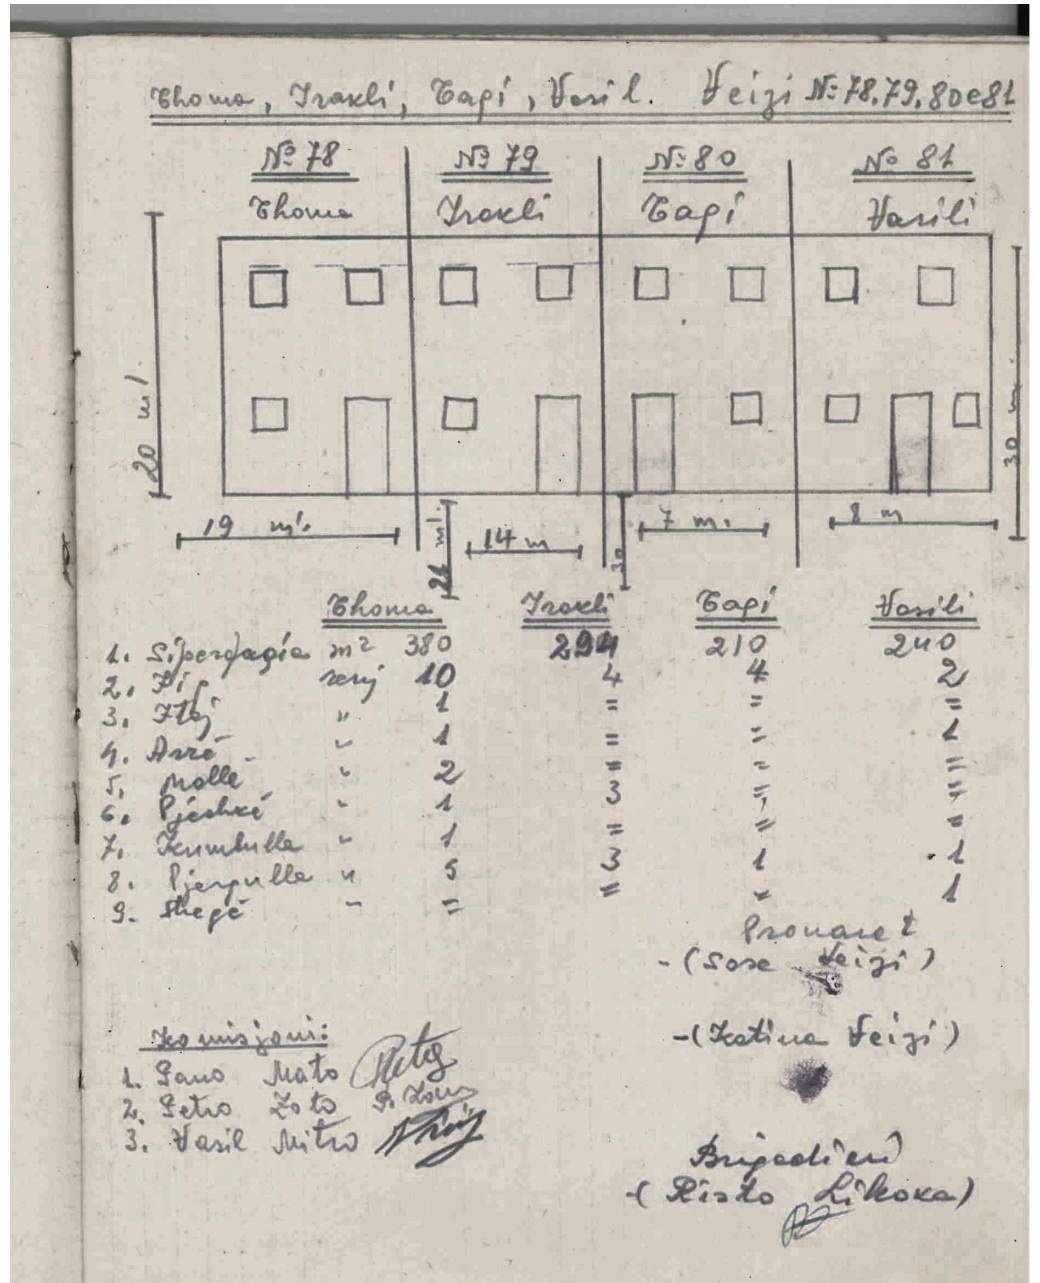 Thoma, Irakli, Capi, Vasil. Veizi №: 78, 79, 80 e 81
№ 78 № 79 №: 80 № 81
Thoma Irakli Capi Vasili
20 ml.
30 m
19 ml. 21 ml. 14 m 30 7 m. 8 m
Thoma Irakli Capi Vasili
1. Siperfaqia m² 380 294 210 240
2. Fiq rrënj 10 4 4 2
3. Ftoj " 1 = = =
4. Arrë " 1 = = 1
5. Molle " 2 = = =
6. Pjeshkë " 1 3 = =
7. Kumbulla " 1 = = =
8. Pjergulla " 5 3 1 1
9. Shegë " = = = 1
Pronaret
-(Sose Veizi)
-(Katina Veizi)
Komisjoni:
1. Pano Mato
2. Petro Zoto P. Zoto
3. Vasil Mitro
Brigadieri
-(Risto Likoka)